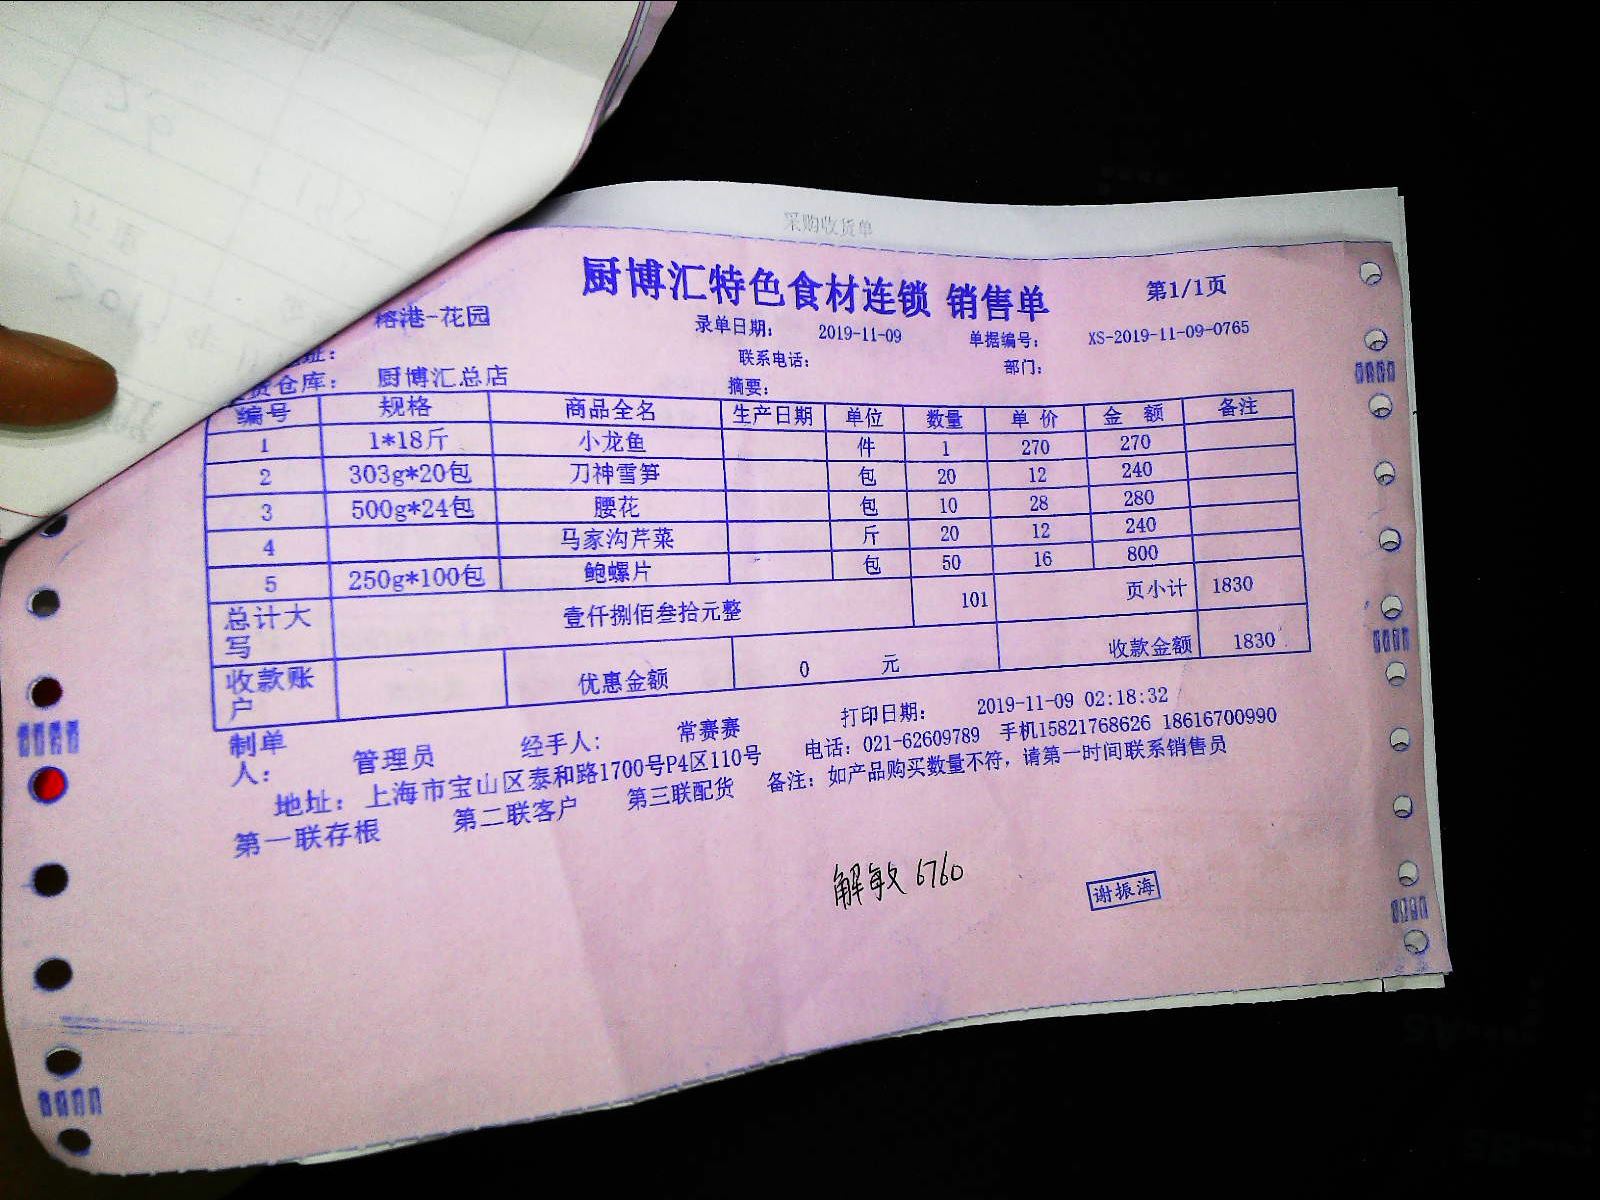 采购收货单
厨博汇特色食材连锁 销售单 第1/1页
榕港-花园 录单日期: 2019-11-09 单据编号: XS-2019-11-09-0765
址: 联系电话: 部门:
货仓库: 厨博汇总店 摘要:
编号 规格 商品全名 生产日期 单位 数量 单价 金额 备注
1 1*18斤 小龙鱼 件 1 270 270
2 303g*20包 刀神雪笋 包 20 12 240
3 500g*24包 腰花 包 10 28 280
4 马家沟芹菜 斤 20 12 240
5 250g*100包 鲍螺片 包 50 16 800
总计大写 壹仟捌佰叁拾元整 101 页小计 1830
收款账户 优惠金额 0 元 收款金额 1830
制单人: 管理员 经手人: 常赛赛 打印日期: 2019-11-09 02:18:32
地址: 上海市宝山区泰和路1700号P4区110号 电话: 021-62609789 手机15821768626 18616700990
第一联存根 第二联客户 第三联配货 备注: 如产品购买数量不符, 请第一时间联系销售员
解敏 6760
谢振海